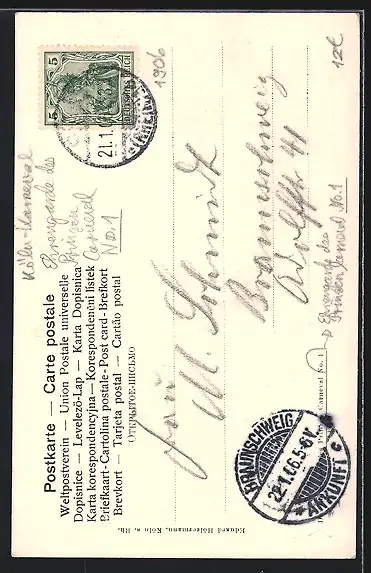 Postkarte — Carte postale
Weltpostverein — Union Postale universelle
Dopisnice — Levelező-Lap — Karta Dopisnica
Karta korespondencyjna — Korespondenční listek
Briefkaart - Cartolina postale - Post card - Brefkort
Brevkort — Tarjeta postal — Cartão postal
ОТКРЫТОЕ-ПИСЬМО
Köln-Karneval
Ehrengarde des
Prinzen
Carneval
No. 1
5 DEUTSCHES REICH 5
21.1.0
(RHEIN)
1906
12€
Frau
M. Schmidt
Braunschweig
Adolfstr 41
Ehrengarde des
Prinzen Carneval No. 1
Carneval No. 1
BRAUNSCHWEIG
22.1.06.5-6V.
* ANKUNFT C
Eduard Höltermann, Köln a. Rh.